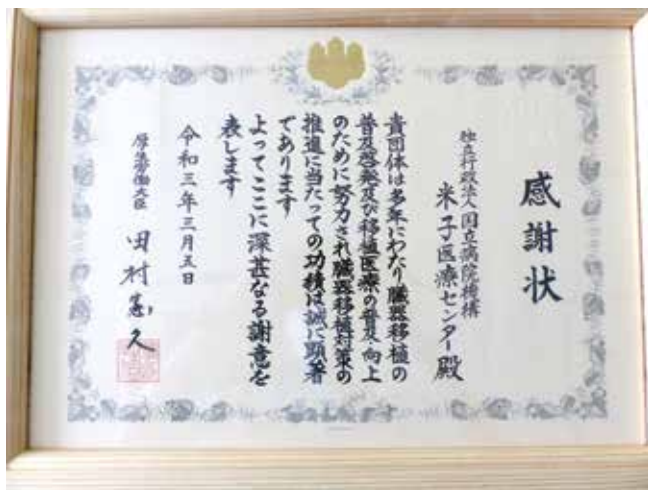 感謝状
独立行政法人国立病院機構
米子医療センター殿
貴団体は多年にわたり臓器移植の
普及啓発及び移植医療の普及・向上
のために努力され臓器移植対策の
推進に当たっての功績は誠に顕著
であります
よってここに深甚なる謝意を
表します
令和三年三月五日
厚生労働大臣 田村憲久